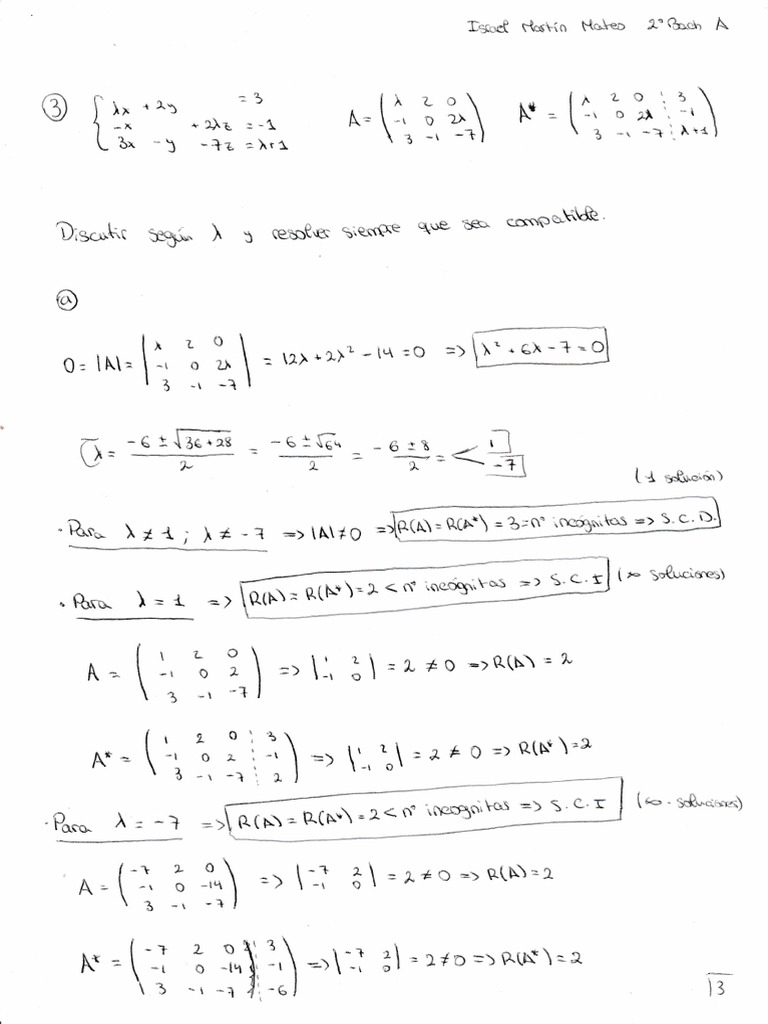 Israel Martín Mateo 2º Bach A
③ { λx + 2y = 3
-x + 2λz = -1
3x - y - 7z = λ+1
A = ( λ 2 0
-1 0 2λ
3 -1 -7 )
A* = ( λ 2 0 ⋮ 3
-1 0 2λ ⋮ -1
3 -1 -7 ⋮ λ+1 )
Discutir según λ y resolver siempre que sea compatible.
ⓐ
0 = |A| = | λ 2 0
-1 0 2λ
3 -1 -7 | = 12λ + 2λ² - 14 = 0 => λ² + 6λ - 7 = 0
λ = (-6 ± √(36+28))/2 = (-6 ± √64)/2 = (-6 ± 8)/2 = < 1
-7
(1 solución)
· Para λ ≠ 1 ; λ ≠ -7 => |A| ≠ 0 => R(A) = R(A*) = 3 = nº incógnitas => S.C.D.
· Para λ = 1 => R(A) = R(A*) = 2 < nº incógnitas => S.C.I (∞ soluciones)
A = ( 1 2 0
-1 0 2
3 -1 -7 ) => | 1 2
-1 0 | = 2 ≠ 0 => R(A) = 2
A* = ( 1 2 0 ⋮ 3
-1 0 2 ⋮ -1
3 -1 -7 ⋮ 2 ) => | 1 2
-1 0 | = 2 ≠ 0 => R(A*) = 2
· Para λ = -7 => R(A) = R(A*) = 2 < nº incógnitas => S.C.I (∞ · soluciones)
A = ( -7 2 0
-1 0 -14
3 -1 -7 ) => | -7 2
-1 0 | = 2 ≠ 0 => R(A) = 2
A* = ( -7 2 0 ⋮ 3
-1 0 -14 ⋮ -1
3 -1 -7 ⋮ -6 ) => | -7 2
-1 0 | = 2 ≠ 0 => R(A*) = 2
13